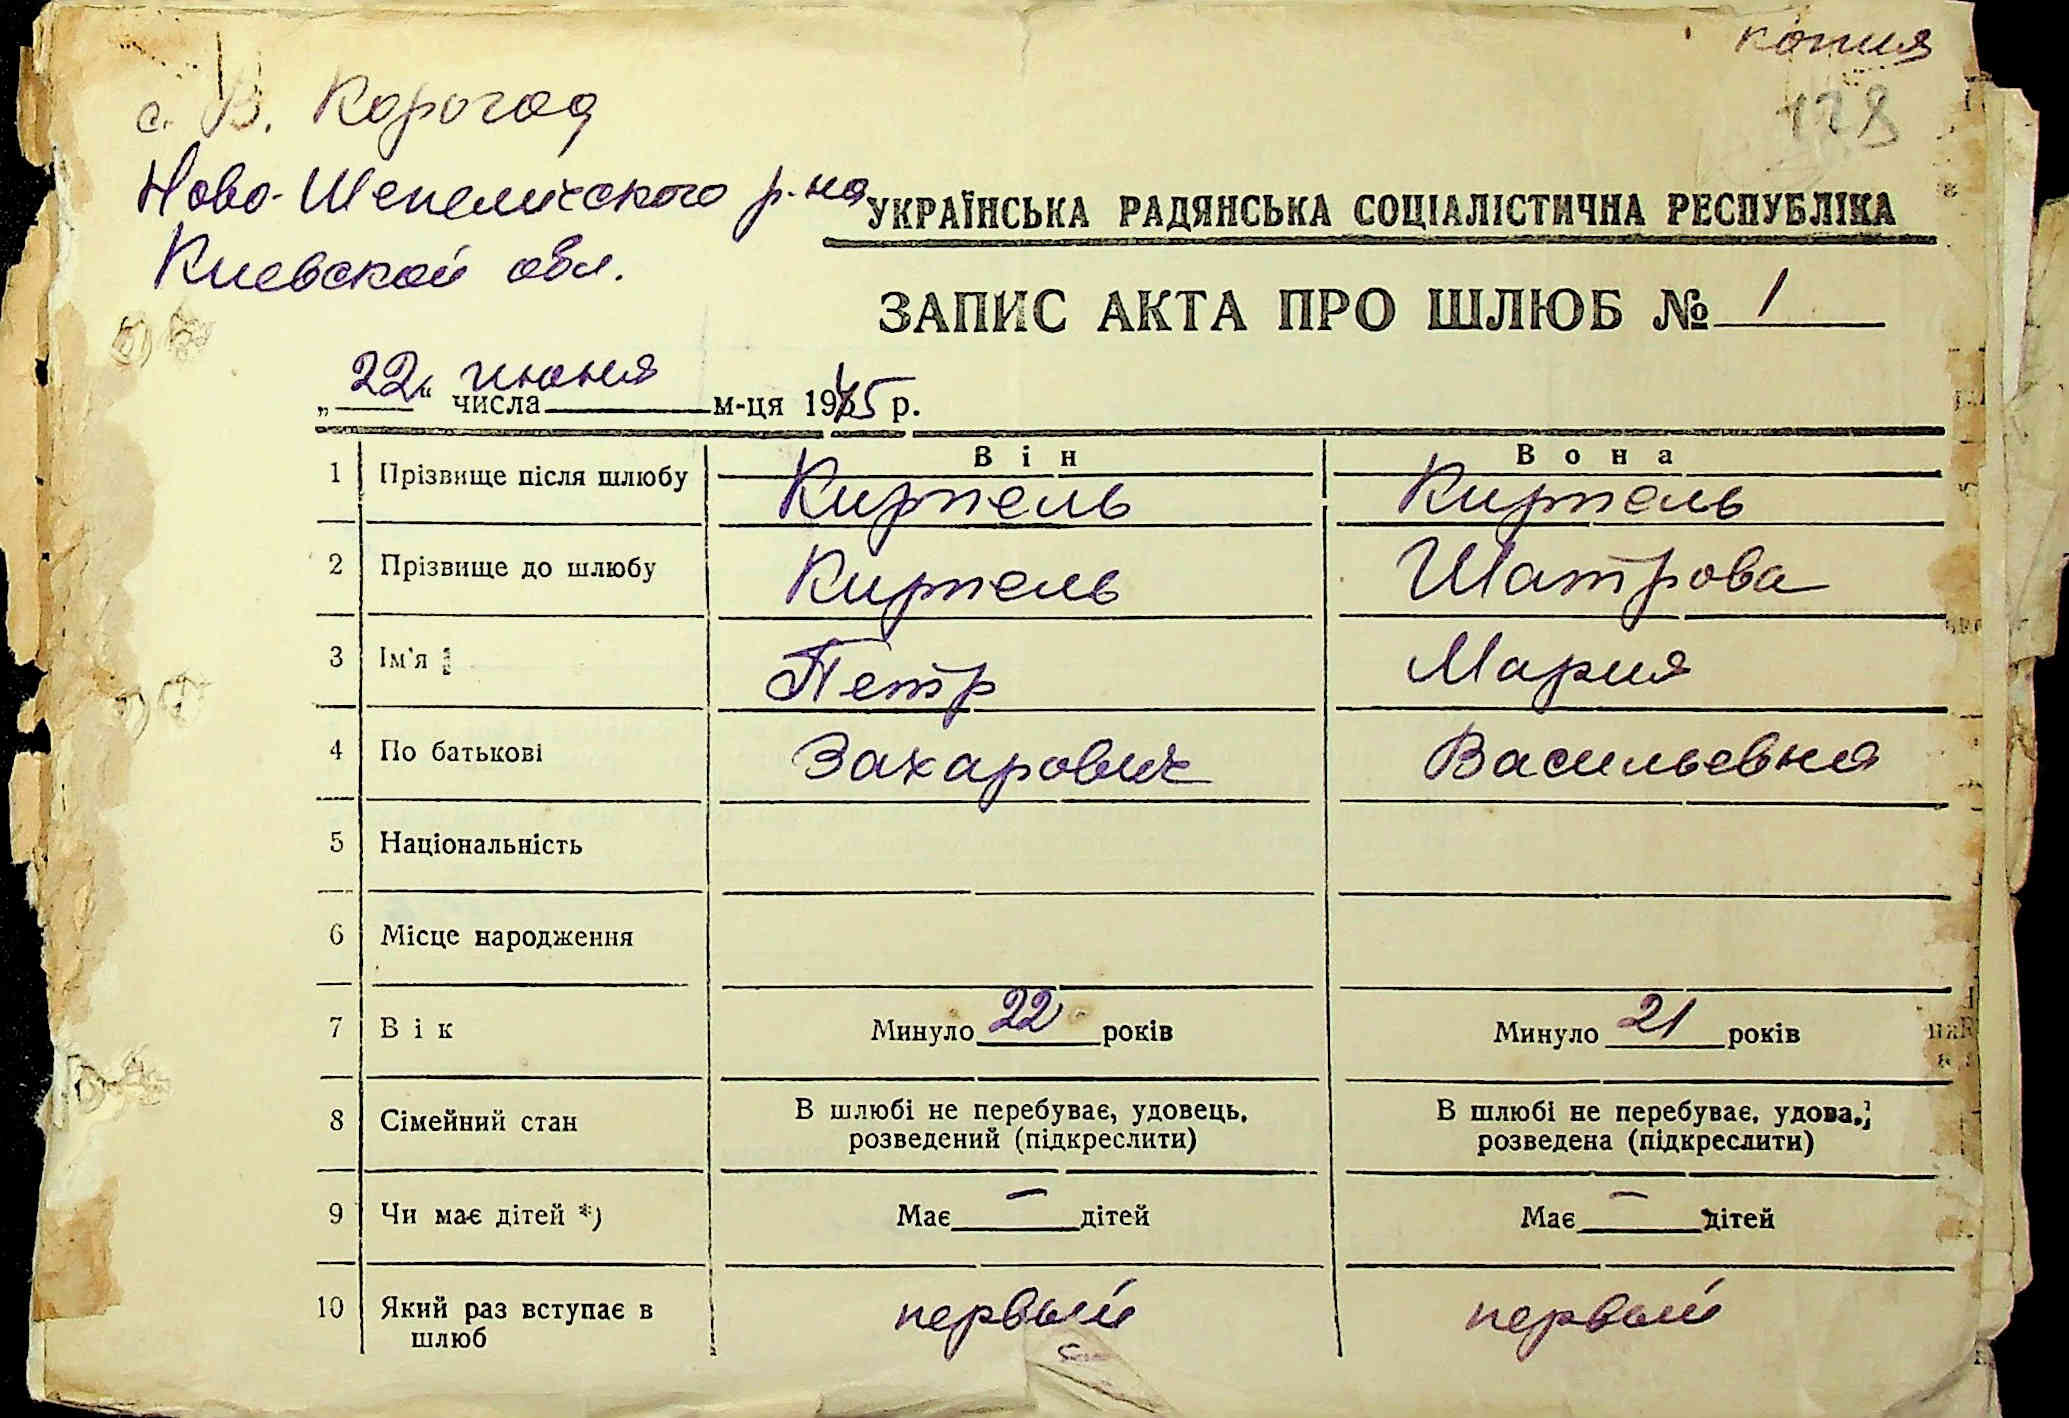 копия
128
с. В. Корогод
Ново-Шепеличского р-на
Киевской обл.
УКРАЇНСЬКА РАДЯНСЬКА СОЦІАЛІСТИЧНА РЕСПУБЛІКА
ЗАПИС АКТА ПРО ШЛЮБ № 1
„22“ числа июня м-ця 1945 р.
Він Вона
1 Прізвище після шлюбу Кирпель Кирпель
2 Прізвище до шлюбу Кирпель Шатрова
3 Ім'я Петр Мария
4 По батькові Захарович Васильевна
5 Національність
6 Місце народження
7 Вік Минуло 22 років Минуло 21 років
8 Сімейний стан В шлюбі не перебуває, удовець, В шлюбі не перебуває, удова,
розведений (підкреслити) розведена (підкреслити)
9 Чи має дітей *) Має — дітей Має — дітей
10 Який раз вступає в первый первый
шлюб